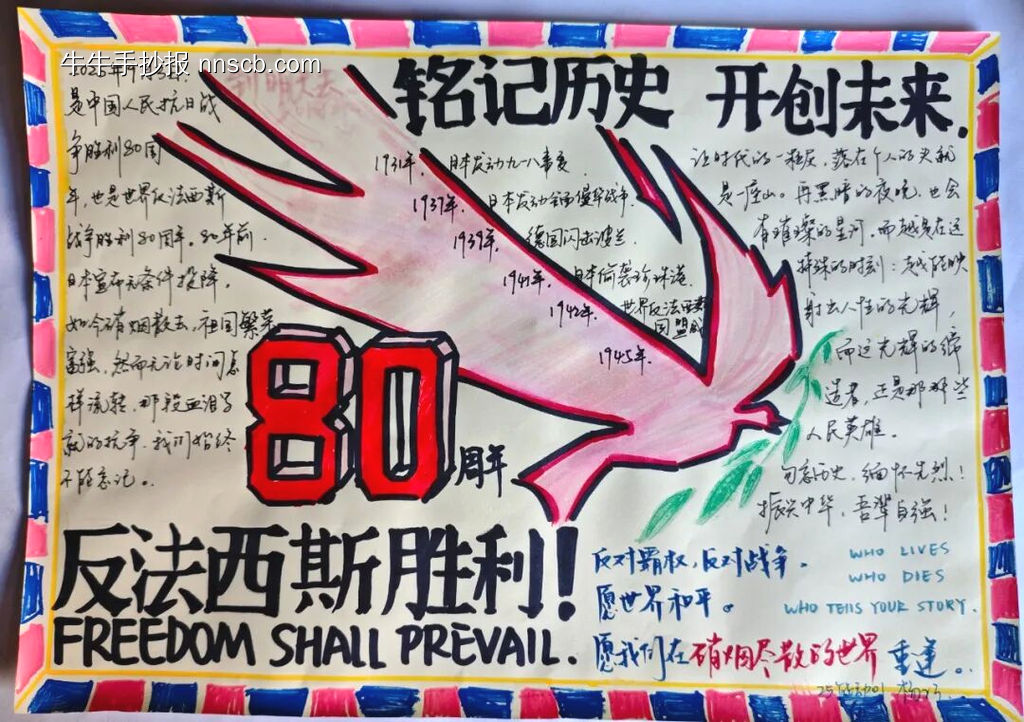 牛牛手抄报 nnscb.com
铭记历史 开创未来.
是中国人民抗日战
争胜利80周
年,也是世界反法西斯
战争胜利80周年。80年前.
日本宣布无条件投降。
如今硝烟散去,祖国繁荣
富强,然而无论时间怎
样流转,那段血泪写
就的抗争.我们始终
不能忘记。
1931年, 日本发动九一八事变
1937年. 日本发动全面侵华战争.
1939年, 德国闪击波兰
1941年, 日本偷袭珍珠港
1942年. 世界反法西斯
国盟成
1945年.
让时代的一粒灰,落在个人的头就
是一座山。再黑暗的夜晚,也会
有璀璨的星河,而越是在这
特殊的时刻:越能映
射出人性的光辉,
而这光辉的缔
造者,正是那那些
人民英雄.
勿忘历史,缅怀先烈!
振兴中华,吾辈自强!
80周年
反法西斯胜利!
FREEDOM SHALL PREVAIL.
反对霸权,反对战争。
愿世界和平。
愿我们在硝烟尽散的世界 重逢。
WHO LIVES
WHO DIES
WHO TELLS YOUR STORY.